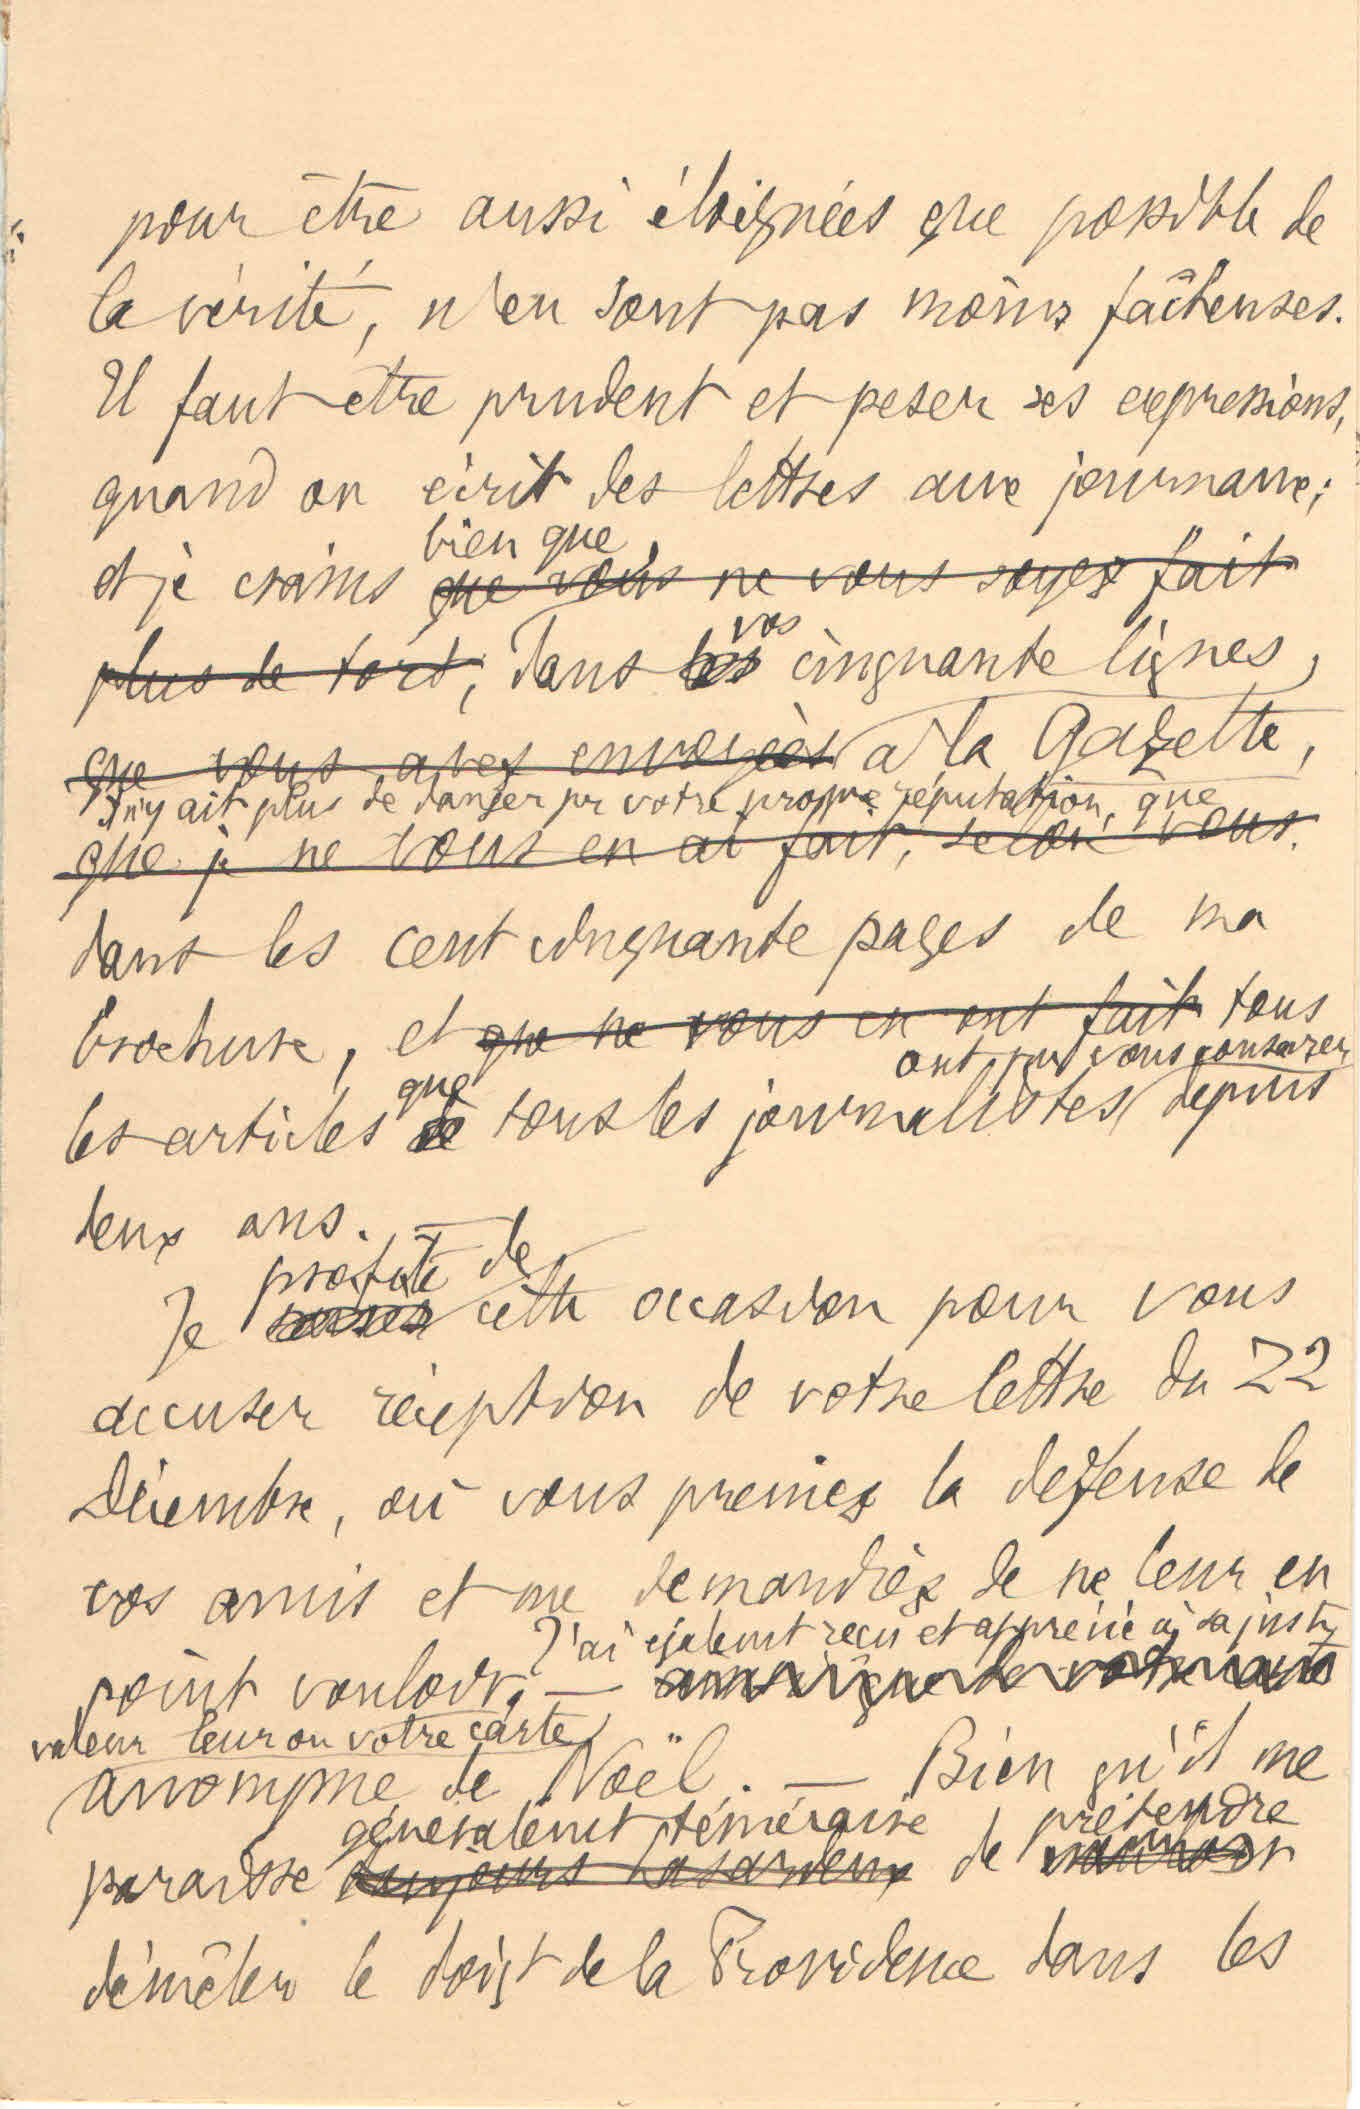 pour être aussi éloignées que possible de
la vérité, n'en sont pas moins fâcheuses.
Il faut être prudent et peser ses expressions,
quand on écrit des lettres aux journaux;
bien que
et je crains que vous ne vous soyez fait
vos
plus de tort, dans les cinquante lignes,
que vous avez envoyées à la Gazette,
il n'y ait plus de danger pr votre propre réputation, que
que je ne vous en ai fait, selon vous.
dans les cent cinquante pages de ma
brochure, et que ne vous en ont fait tous
ont pu vous consacrer
que
les articles de tous les journalistes depuis
deux ans. —
profite de
Je cette occasion pour vous
accuser réception de votre lettre du 22
Décembre, où vous preniez la défense de
vos amis et me demandiez de ne leur en
J'ai également reçu et apprécié à sa juste
point vouloir. —
valeur leur ou votre carte
anonyme de Noël. — Bien qu'il me
généralement téméraire prétendre
paraisse toujours hasardeux de vouloir
démêler le doigt de la Providence dans les